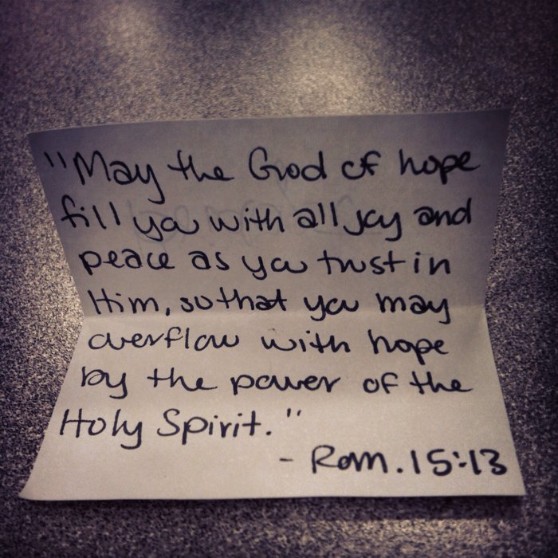 "May the God of hope
fill you with all joy and
peace as you trust in
Him, so that you may
overflow with hope
by the power of the
Holy Spirit."
- Rom. 15:13